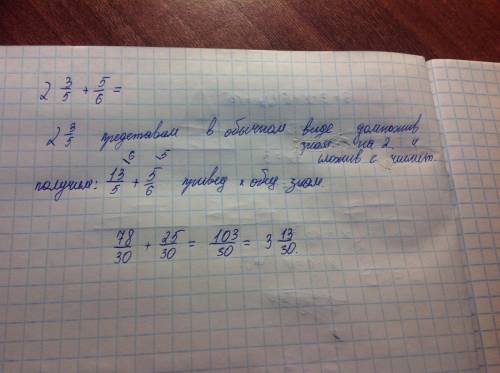 2 3/5 + 5/6 =
2 3/5 представим в обычном виде домножив
знам. на 2 и
сложив с числит.
6 5
получим: 13/5 + 5/6 привед к общ. знам.
78/30 + 25/30 = 103/30 = 3 13/30.